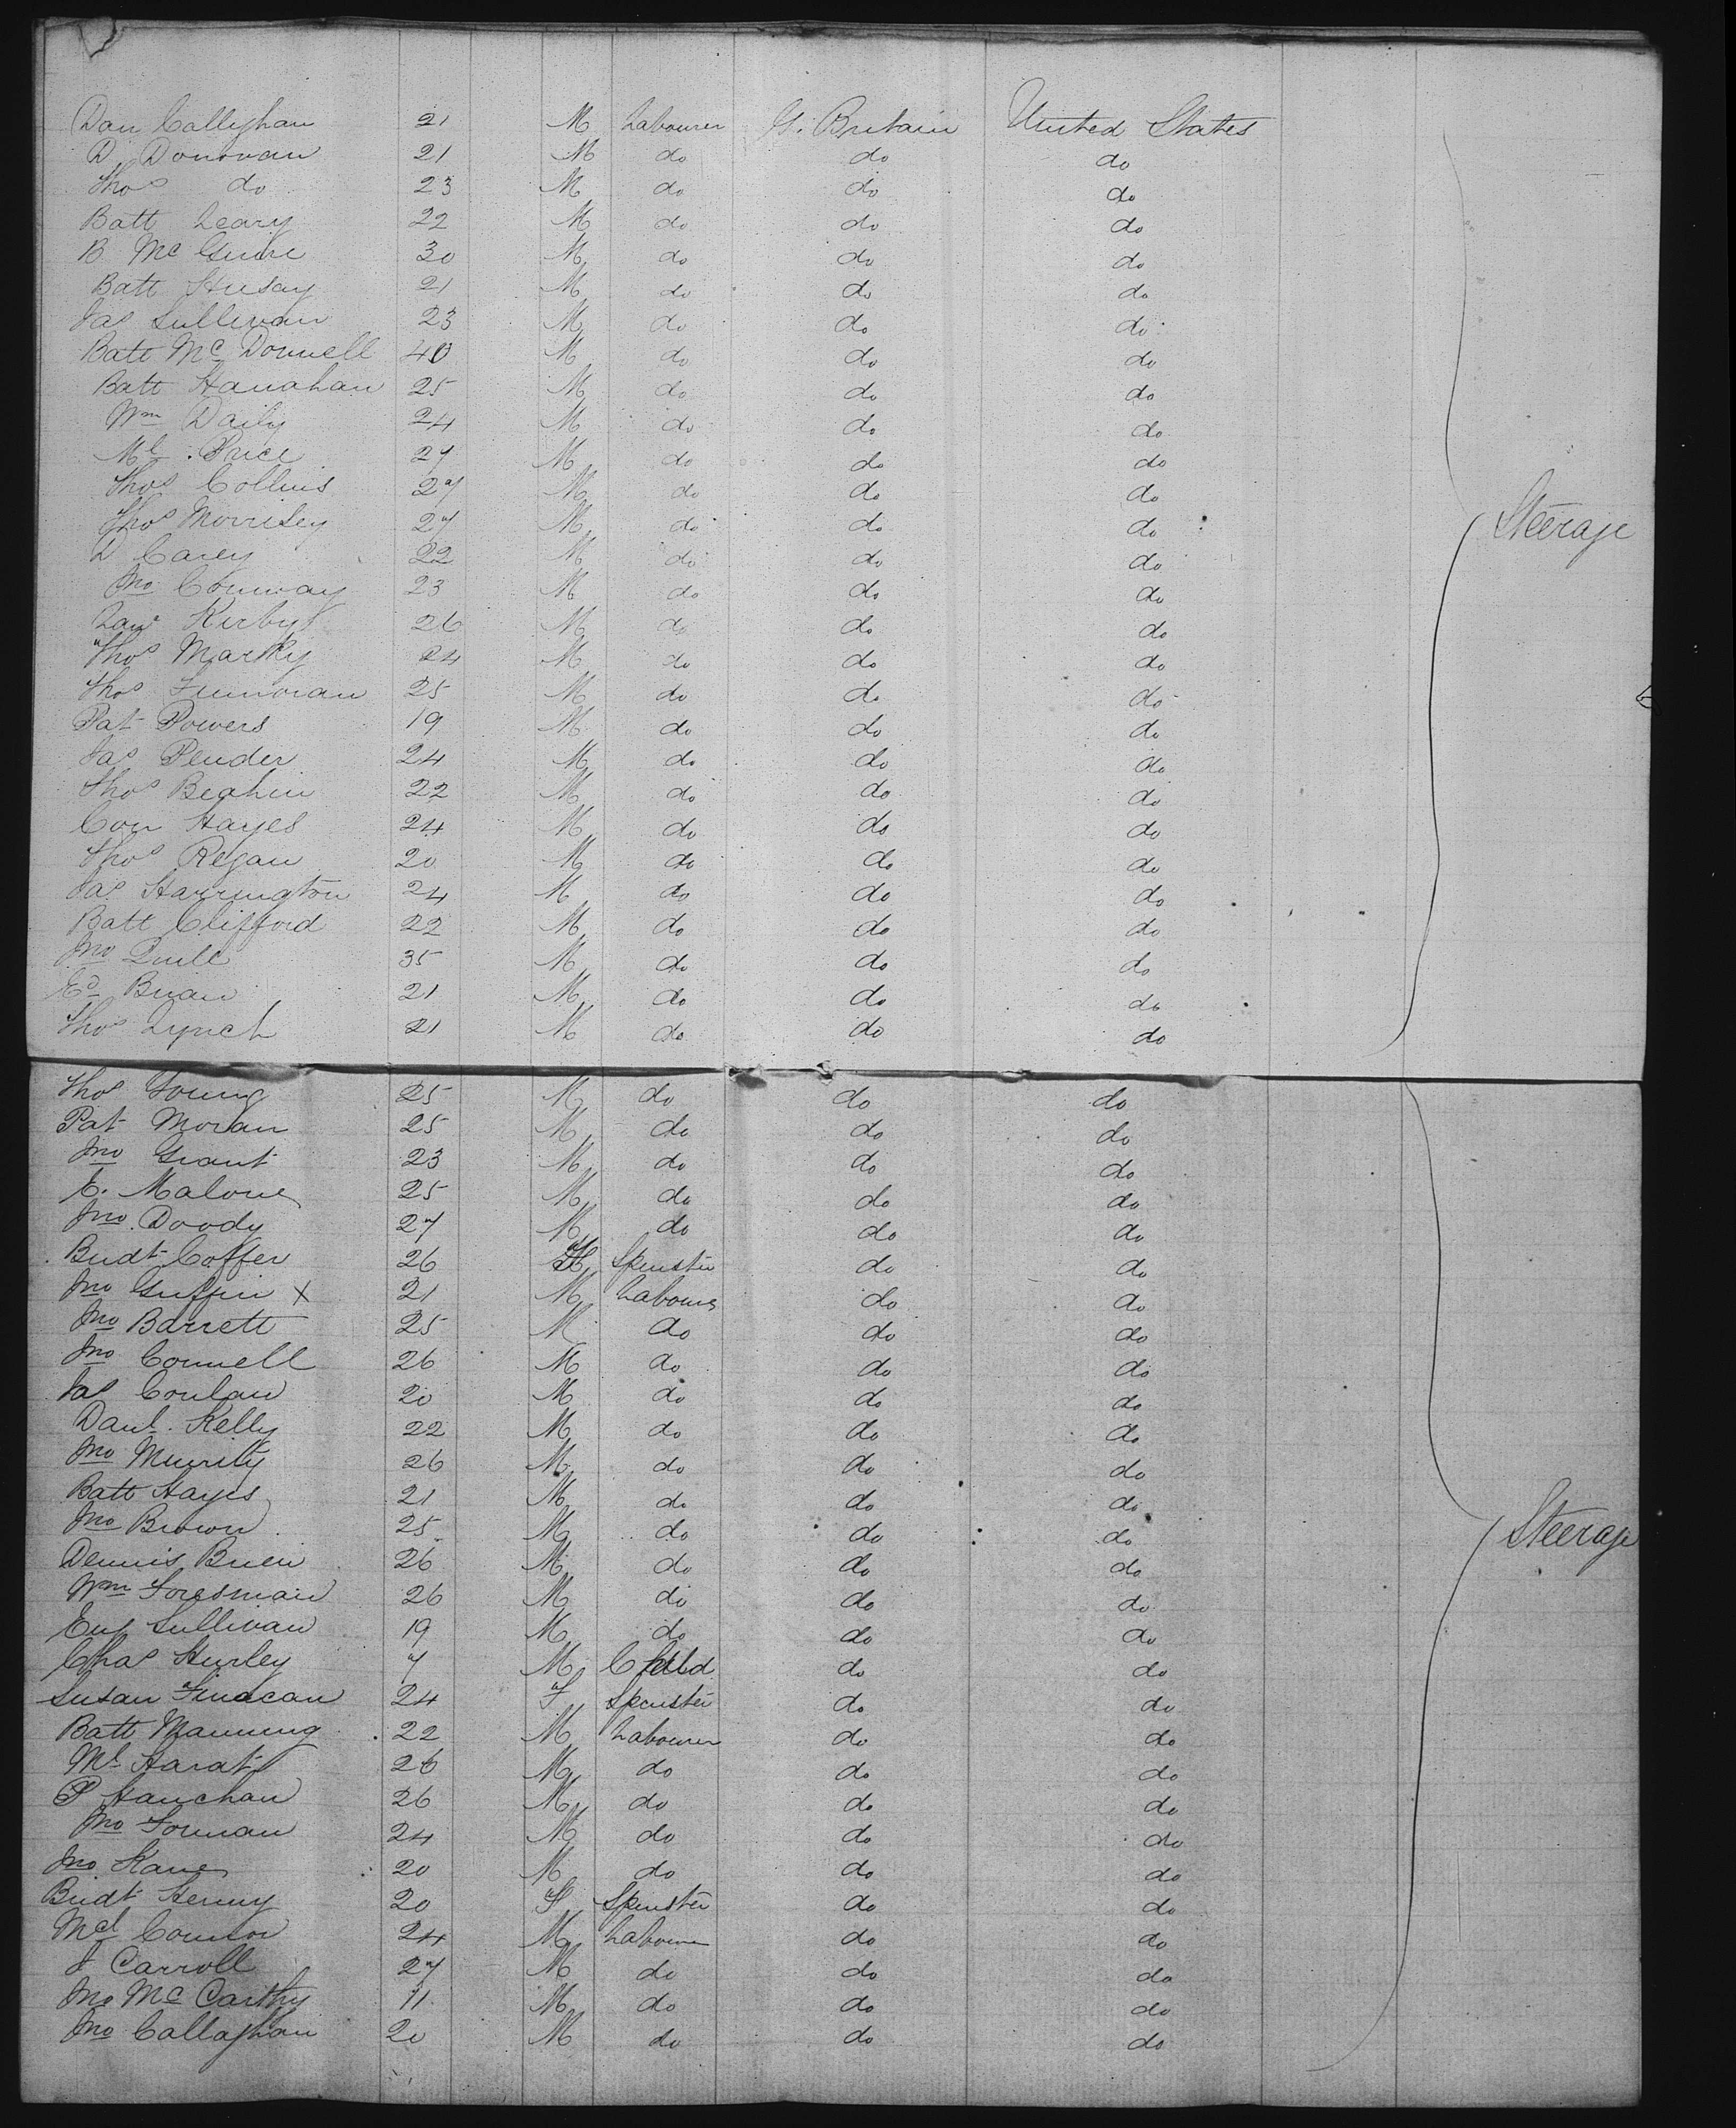 Dan Callyhan 21 M Labourer G. Britain United States
D. Donovan 21 M do do do
Thos do 23 M do do do
Batt Leary 22 M do do do
B Mc Guire 30 M do do do
Batt Husay 21 M do do do
Jas Sullivan 23 M do do do
Batt Mc Donnell 40 M do do do
Batt Hanahan 25 M do do do
Wm Daily 24 M do do do
Ml. Price 27 M do do do
Thos Collins 27 M do do do
Thos Morrisey 27 M do do do Steerage
D Carey 22 M do do do
Jno Conway 23 M do do do
Law Kirby 26 M do do do
Thos Marky 24 M do do do
Thos 25 M do do do
Pat Powers 19 M do do do
Jas Pender 24 M do do do
Thos Beahin 22 M do do do
Con Hayes 24 M do do do
Thos Regan 20 M do do do
Jas Harrington 24 M do do do
Batt Clifford 22 M do do do
Jno Quill 35 M do do do
Ed Brian 21 M do do do
Thos Lynch 21 M do do do
Thos Young 25 M do do do
Pat Moran 25 M do do do
Jno Grant 23 M do do do
E. Malone 25 M do do do
Jno Doody 27 M do do do
Bridt Coffer 26 F Spinster do do
Jno Griffin X 21 M Labourer do do
Jno Barrett 25 M do do do
Jno Connell 26 M do do do
Jas Conlan 20 M do do do
Danl. Kelly 22 M do do do
Jno 26 M do do do
Batt Hayes 21 M do do do
Jno Brown 25 M do do do Steerage
Dennis Brien 26 M do do do
Wm Foresman 26 M do do do
Eug Sullivan 19 M do do do
Chas Hurley 7 M Child do do
Susan Finacan 24 F Spinster do do
Batt Manning 22 M Labourer do do
Ml Harat 26 M do do do
P Hanchan 26 M do do do
Jno 24 M do do do
Jno Kane 20 M do do do
Bridt Henny 20 F Spinster do do
Mcl Connor 24 M Labourer do do
J Carroll 27 M do do do
Jno Mc Carthy 11 M do do do
Jno Callaghan 20 M do do do